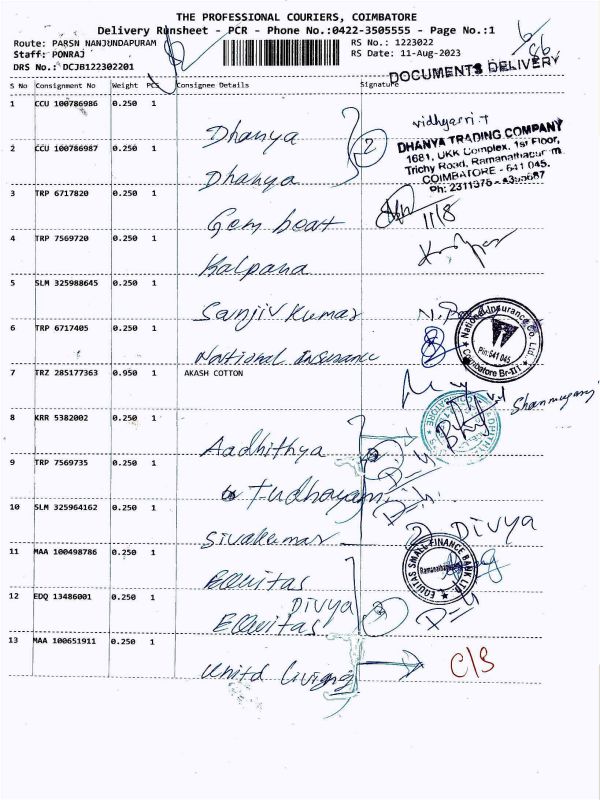 THE PROFESSIONAL COURIERS, COIMBATORE
Delivery Runsheet - PCR - Phone No.:0422-3505555 - Page No.:1
Route: PARSN NANJUNDAPURAM
RS No.: 1223022
Staff: PONRAJ
RS Date: 11-Aug-2023
DRS No.: DCJB122302201
DOCUMENTS DELIVERY
S No Consignment No Weight PCS Consignee Details Signature
1 CCU 100786986 0.250 1 Dhanya
DHANYA TRADING COMPANY
1681, UKK Complex, 1st Floor,
Trichy Road, Ramanathapuram
COIMBATORE - 641 045.
2 CCU 100786987 0.250 1 Dhanya
2
3 TRP 6717820 0.250 1 Gem bear
11/8
4 TRP 7569720 0.250 1 Kalpana
5 SLM 325988645 0.250 1 Sanjiv Kumar
6 TRP 6717405 0.250 1 National Insurance
National Insurance Co. Ltd.
Pin:641 045
Coimbatore Br-III
7 TRZ 285177363 0.950 1 AKASH COTTON
Shanmugam
8 KRR 5382002 0.250 1 Aadhithya
9 TRP 7569735 0.250 1
10 SLM 325964162 0.250 1 Sivakumar
Divya
11 MAA 100498786 0.250 1 Equitas
EQUITAS SMALL FINANCE BANK LTD.
12 EDQ 13486001 0.250 1 Equitas
Divya
13 MAA 100651911 0.250 1 United Living
C/S